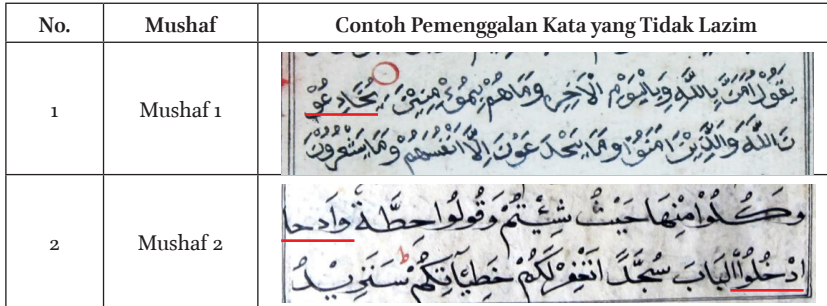 No. Mushaf Contoh Pemenggalan Kata yang Tidak Lazim
1 Mushaf 1
يَقُوْلُ اٰمَنَّ بِاللّٰهِ وَبِالْيَوْمِ الْاٰخِرِ وَمَاهُمْ بِمُؤْمِنِيْنَ يُخَادِعُوْ
نَ اللّٰهَ وَالَّذِيْنَ اٰمَنُوْا وَمَا يَخْدَعُوْنَ اِلَّا اَنْفُسَهُمْ وَمَا يَشْعُرُوْنَ
2 Mushaf 2
وَكُلُوْا مِنْهَا حَيْثُ شِئْتُمْ وَقُولُوا حِطَّةٌ وَادحا
ادْخُلُوا الْبَابَ سُجَّدًا نَغْفِرْ لَكُمْ خَطِيْآتِكُمْ سَنَزِيْدُ